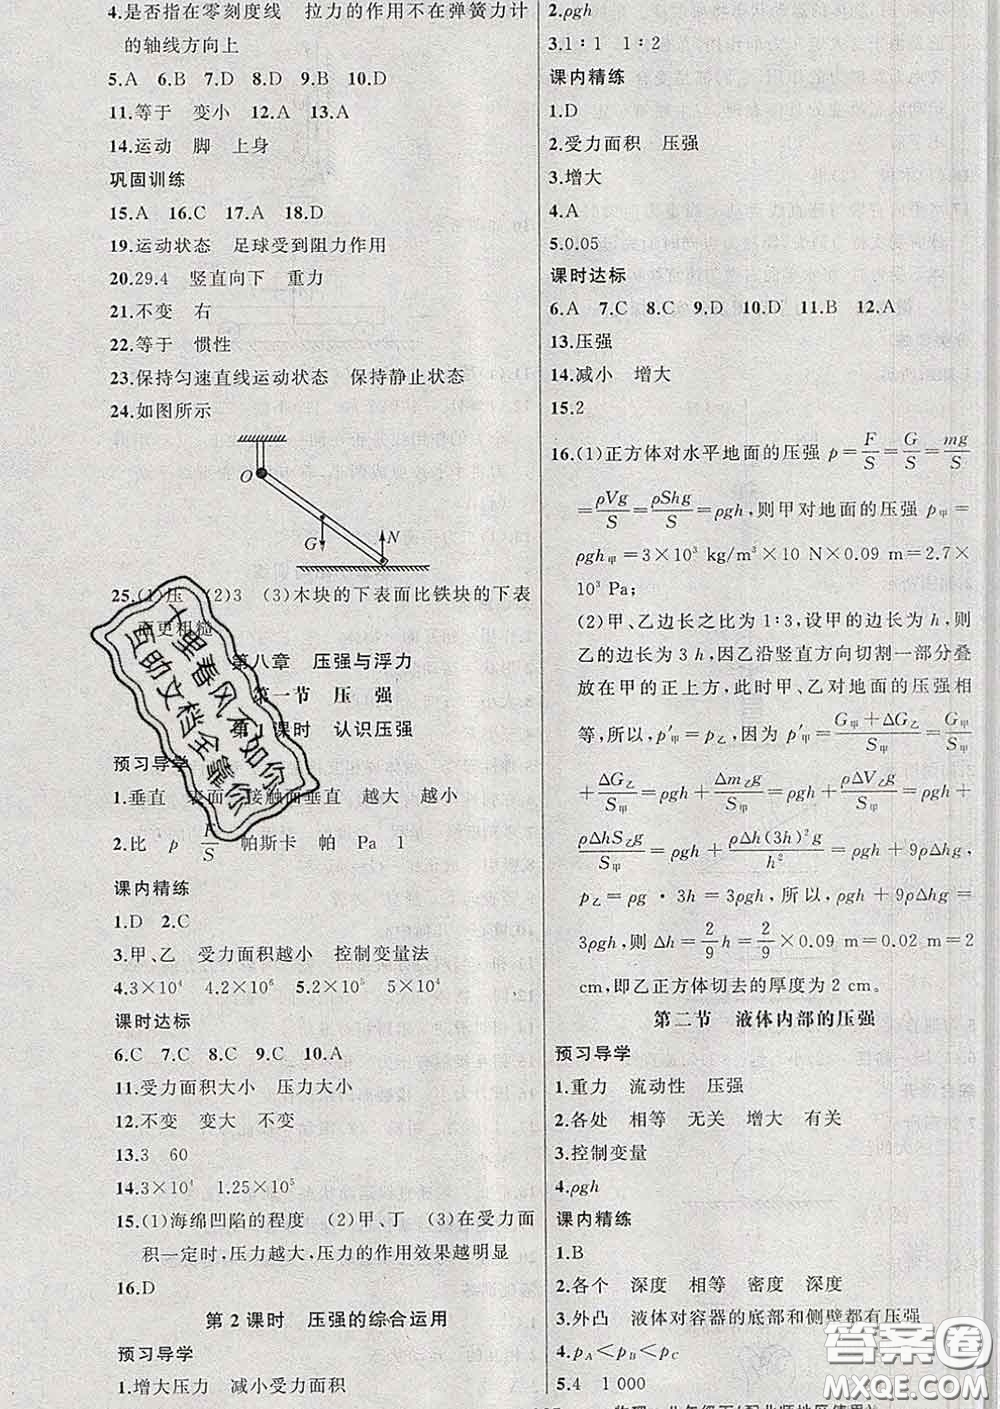 4.是否指在零刻度线　拉力的作用不在弹簧力计
的轴线方向上
5.A　6.B　7.D　8.D　9.B　10.D
11.等于　变小　12.A　13.A
14.运动　脚　上身
巩固训练
15.A　16.C　17.A　18.D
19.运动状态　足球受到阻力作用
20.29.4　竖直向下　重力
21.不变　右
22.等于　惯性
23.保持匀速直线运动状态　保持静止状态
24.如图所示
O
G
N
25.(1)压　(2)3　(3)木块的下表面比铁块的下表
面更粗糙
第八章　压强与浮力
第一节　压　强
第　课时　认识压强
预习导学
1.垂直　表面　接触面垂直　越大　越小
2.比　p　F/S　帕斯卡　帕　Pa　1
课内精练
1.D　2.C
3.甲、乙　受力面积越小　控制变量法
4.3×10⁴　4.2×10⁶　5.2×10⁵
课时达标
6.C　7.C　8.C　9.C　10.A
11.受力面积大小　压力大小
12.不变　变大　不变
13.3　60
14.3×10⁴　1.25×10⁵
15.(1)海绵凹陷的程度　(2)甲、丁　(3)在受力面
积一定时,压力越大,压力的作用效果越明显
16.D
第 2 课时　压强的综合运用
预习导学
1.增大压力　减小受力面积
2.ρgh
3.1∶1　1∶2
课内精练
1.D
2.受力面积　压强
3.增大
4.A
5.0.05
课时达标
6.A　7.C　8.C　9.D　10.D　11.B　12.A
13.压强
14.减小　增大
15.2
16.(1)正方体对水平地面的压强 p=F/S=G/S=mg/S
=ρVg/S=ρShg/S=ρgh,则甲对地面的压强 p甲=
ρgh甲=3×10³ kg/m³×10 N×0.09 m=2.7×
10³ Pa;
(2)甲、乙边长之比为1∶3,设甲的边长为 h,则
乙的边长为3 h,因乙沿竖直方向切割一部分叠
放在甲的正上方,此时甲、乙对地面的压强相
等,所以,p′甲=p乙,因为,p′甲=(G甲+ΔG乙)/S甲=G甲/S甲
+ΔG乙/S甲=ρgh+Δm乙g/S甲=ρgh+ρΔV乙g/S甲=ρgh+
ρΔhS乙g/S甲=ρgh+ρΔh(3h)²g/h²=ρgh+9ρΔhg,
p乙=ρg·3h=3ρgh,所以,ρgh+9ρΔhg=
3ρgh,则 Δh=2/9 h=2/9×0.09 m=0.02 m=2
cm,即乙正方体切去的厚度为2 cm。
第二节　液体内部的压强
预习导学
1.重力　流动性　压强
2.各处　相等　无关　增大　有关
3.控制变量
4.ρgh
课内精练
1.B
2.各个　深度　相等　密度　深度
3.外凸　液体对容器的底部和侧壁都有压强
4.pA<pB<pC
5.4　1 000
十里春风不如你
互助文档全靠你
答案圈
MXQE.COM